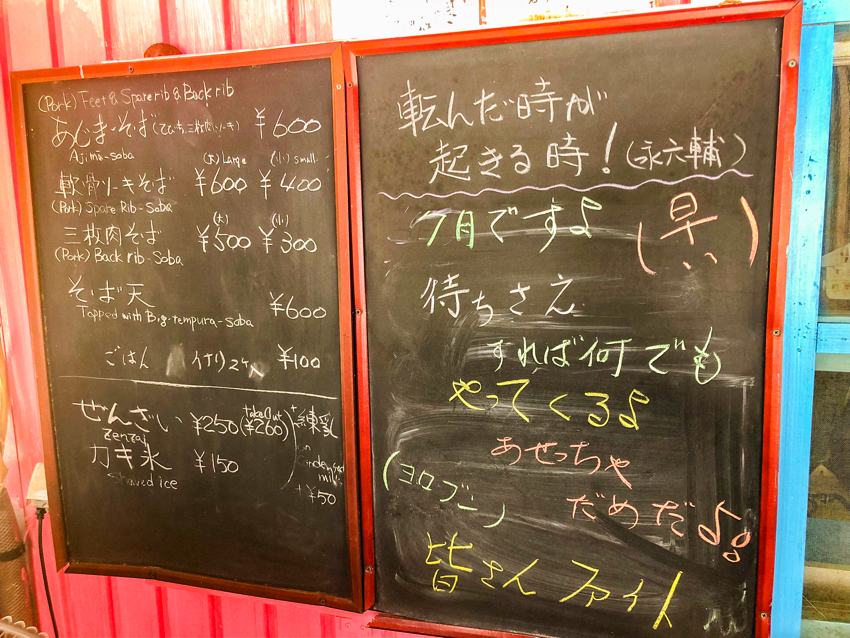 (Pork) Feet & Spare rib & Back rib
あじまーそば(てびち、三枚肉、ソーキ) ¥600
Ajima-soba
(大) Large (小) small
軟骨ソーキそば ¥600 ¥400
(Pork) Spare Rib-Soba
(大) (小)
三枚肉そば ¥500 ¥300
(Pork) Back rib-Soba
そば天 ¥600
Topped with Big-tempura-soba
ごはん ¥100
ぜんざい ¥250 (Take Out ¥260)
zenzai
カキ氷 ¥150
Shaved ice
+練乳
condensed
milk
+¥50
転んだ時が
起きる時!(永六輔)
7月ですよ (早い)
待ちさえ
すれば何でも
やってくるよ
あせっちゃ
だめだ♪
(ヨロブン)
皆さん ファイト